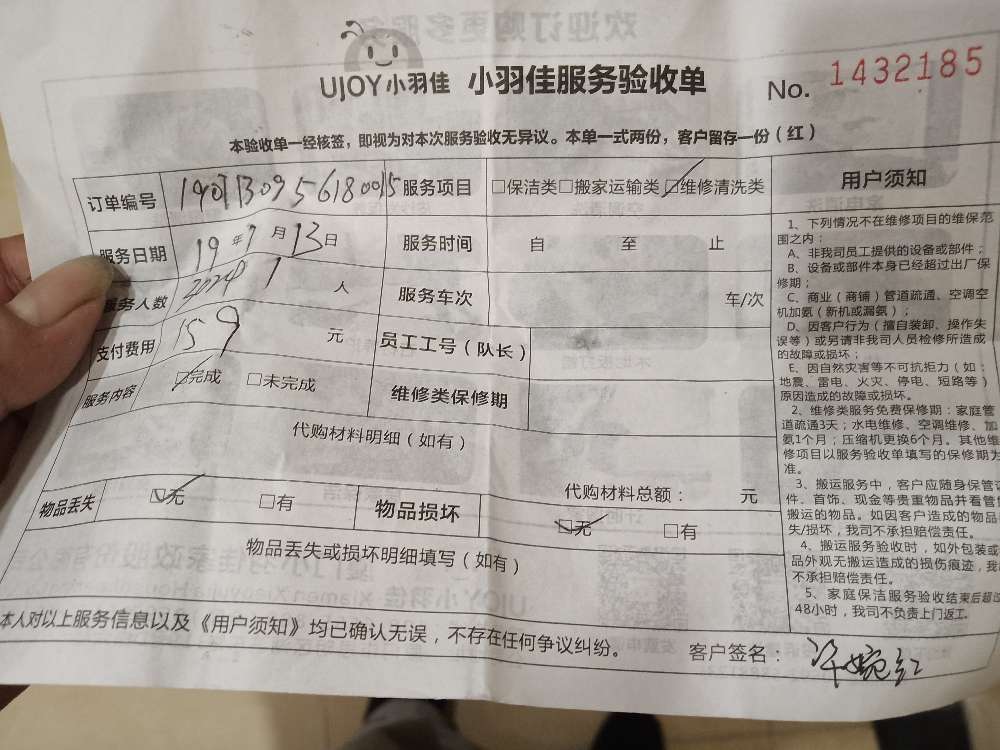 UJOY小羽佳 小羽佳服务验收单 No. 1432185
本验收单一经核签，即视为对本次服务验收无异议。本单一式两份，客户留存一份（红）
订单编号 服务项目 □保洁类□搬家运输类☑维修清洗类
服务日期 19年7月13日 服务时间 自 至 止
服务人数 1 人 服务车次 车/次
支付费用 159 元 员工工号（队长）
服务内容 ☑完成 □未完成 维修类保修期
代购材料明细（如有）
代购材料总额： 元
物品丢失 ☑无 □有 物品损坏 ☑无 □有
物品丢失或损坏明细填写（如有）
本人对以上服务信息以及《用户须知》均已确认无误，不存在任何争议纠纷。
客户签名：
用户须知
1、下列情况不在维修项目的维保范
围之内：
A、非我司员工提供的设备或部件；
B、设备或部件本身已经超过出厂保
修期；
C、商业（商铺）管道疏通、空调空
机加氨（新机或漏氨）；
D、因客户行为（擅自装卸、操作失
误等）或另请非我司人员检修所造成
的故障或损坏；
E、因自然灾害等不可抗拒力（如：
地震、雷电、火灾、停电、短路等）
原因造成的故障或损坏。
2、维修类服务免费保修期：家庭管
道疏通3天；水电维修、空调维修、加
氨1个月；压缩机更换6个月。其他维
修项目以服务验收单填写的保修期为
准。
3、搬运服务中，客户应随身保管证
件、首饰、现金等贵重物品并看管
搬运的物品。如因客户造成的物品
失/损坏，我司不承担赔偿责任。
4、搬运服务验收时，如外包装或
品外观无搬运造成的损伤痕迹，我
不承担赔偿责任。
5、家庭保洁服务验收结束后超过
48小时，我司不负责上门返工。